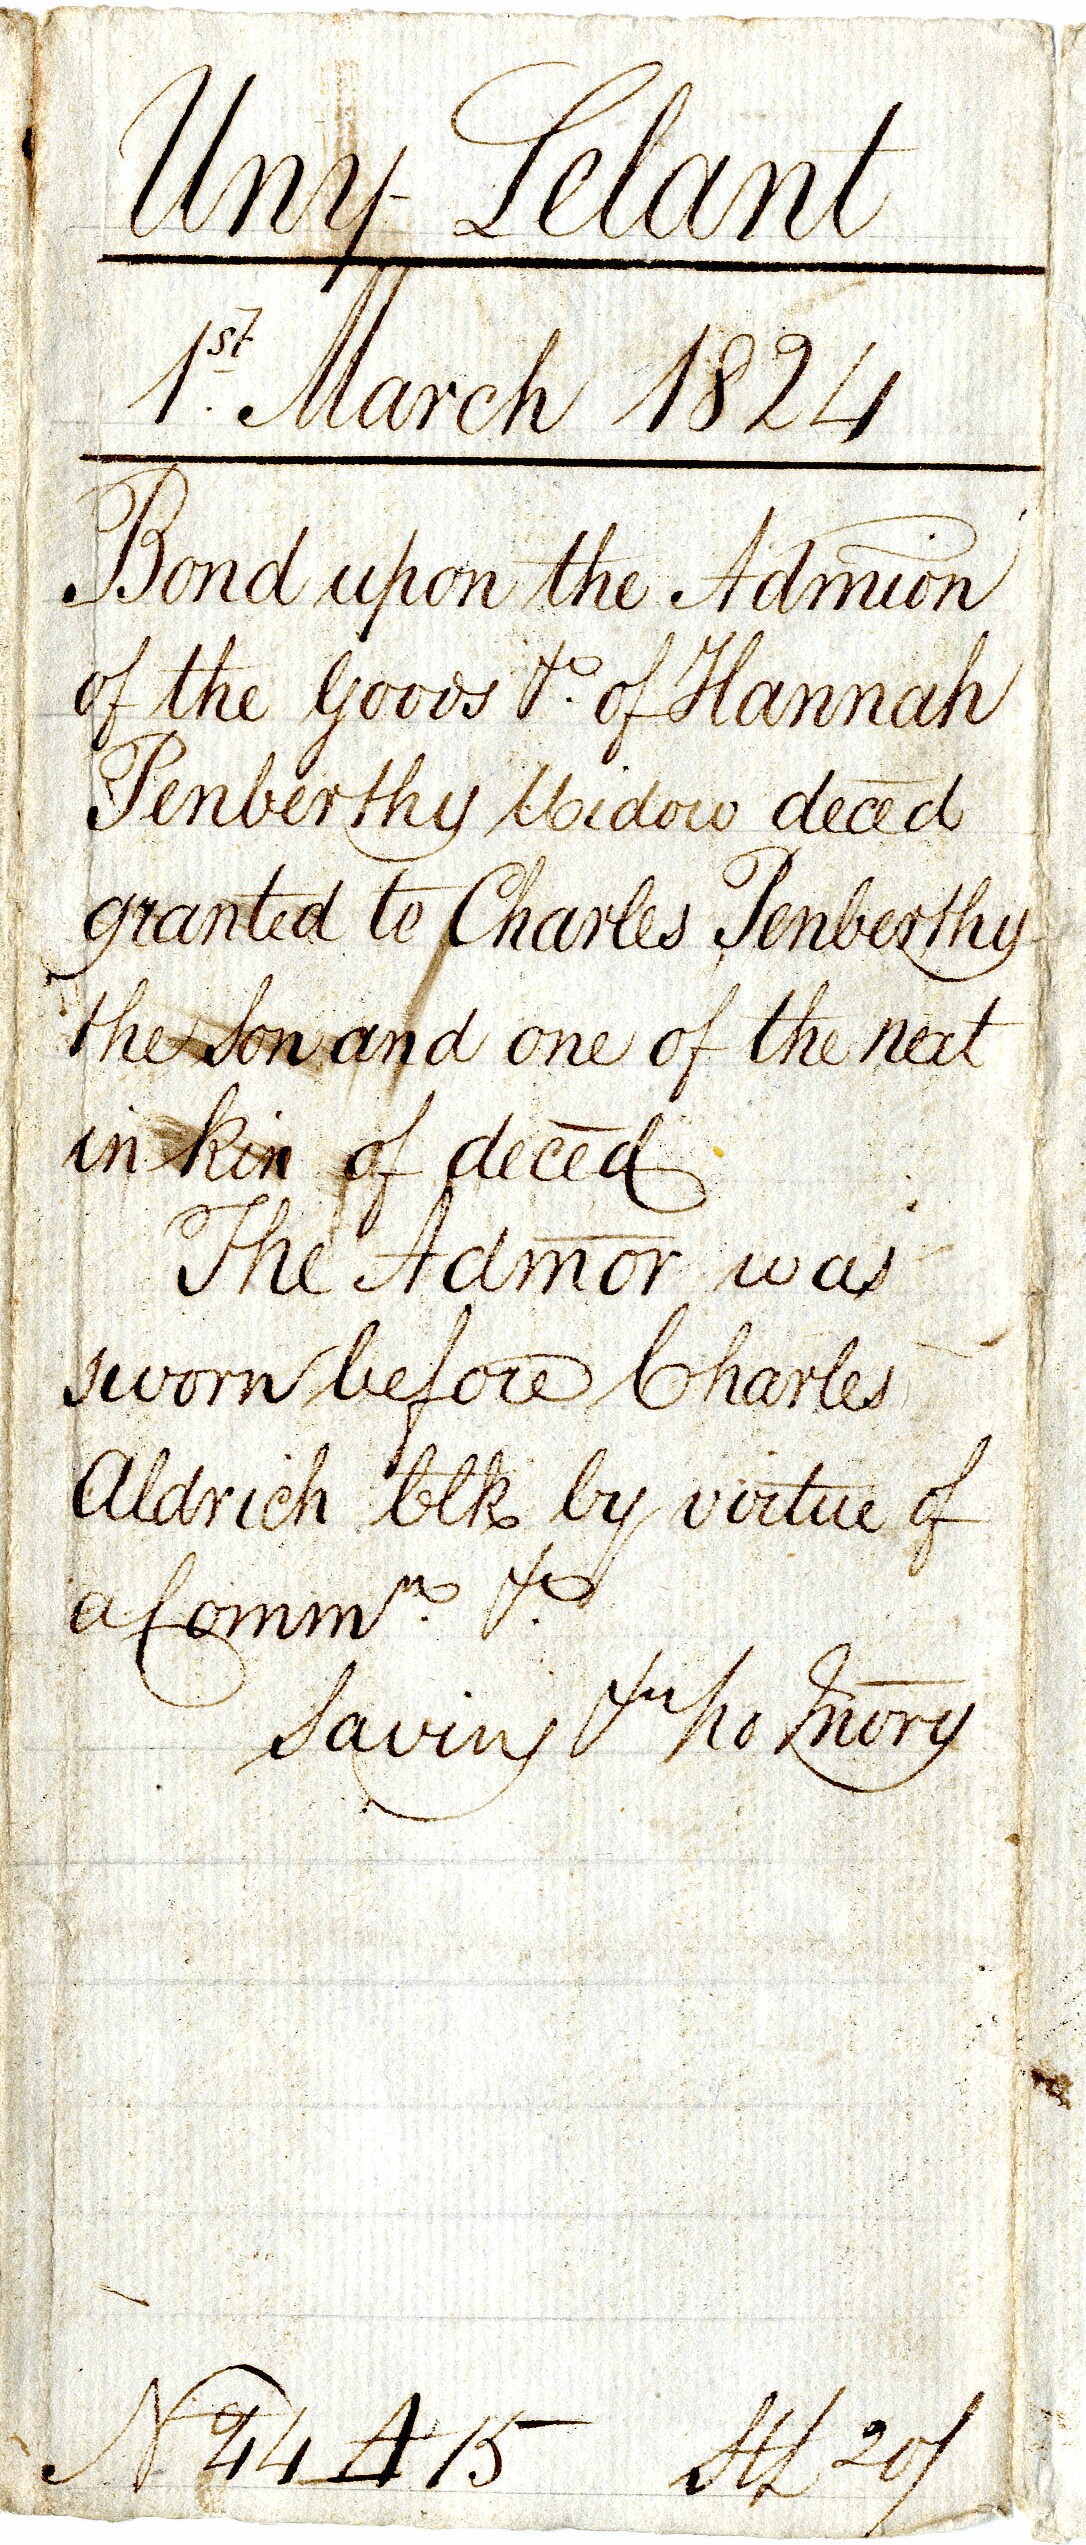 Uny Lelant
1st. March 1824
Bond upon the Admīon
of the Goods &c. of Hannah
Penberthy Widow decēd
granted to Charles Penberthy
the Son and one of the next
in kin of decēd
The Admōr was
sworn before Charles
Aldrich Clk by virtue of
a Commn. &c.
Saving &c no Invōry
No 44 A 15